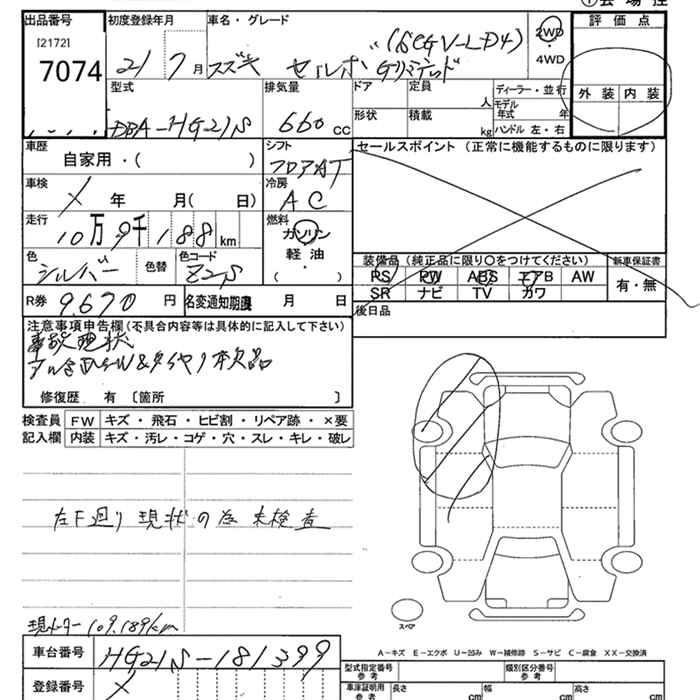 出品番号 初度登録年月 車名・グレード 評価点
[2172]
7074 21 7月 スズキ セルボ Gリミテッド (6CGV-LD4) 2WD・4WD
外装 内装
型式 DBA-HG21S
排気量 660cc
ドア 定員 人
形状 積載 kg
ディーラー・並行
モデル年式 年
ハンドル 左・右
車歴 自家用・( )
シフト フロアAT
セールスポイント (正常に機能するものに限ります)
車検 × 年 月( 日)
冷房 AC
走行 10万9千188km
燃料 ガソリン 軽油・( )
色 シルバー 色替 色コード Z2S
装備品(純正品に限り○をつけてください) 新車保証書
PS PW ABS エアB AW 有・無
SR ナビ TV カワ
R券 9.670円 名変通知期限 月 日
後日品
注意事項申告欄(不具合内容等は具体的に記入して下さい)
事故現状
修復歴 有 〔箇所 〕
検査員記入欄
FW キズ・飛石・ヒビ割・リペア跡・×要
内装 キズ・汚レ・コゲ・穴・スレ・キレ・破レ
左F廻り現状の為未検査
スペア
現メーター109.189km
A-キズ E-エクボ U-凹み W-補修跡 S-サビ C-腐食 XX-交換済
車台番号 HG21S-181399
型式指定番号 参考 類別区分番号 参考
登録番号 ×
車庫証明用 参考 長さ cm 幅 cm 高さ cm